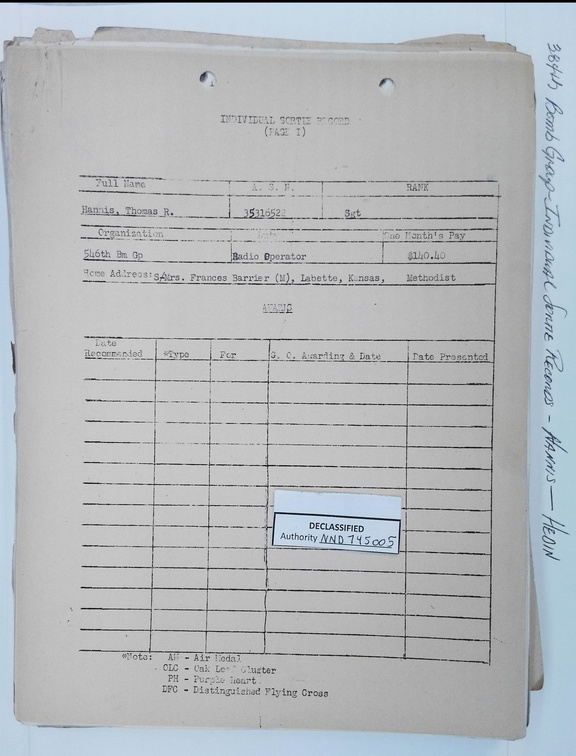 INDIVIDUAL SORTIE RECORD
(PAGE I)
Full Name A. S. N. RANK
Hannis, Thomas R. 35316522 Sgt
Organization One Month's Pay
546th Bm Gp Radio Operator $140.40
Home Address: S/Mrs. Frances Barrier (M), Labette, Kansas, Methodist
AWARDS
Date
Recommended *Type For G. O. Awarding & Date Date Presented
DECLASSIFIED
Authority NND 745005
*Note: AM - Air Medal
OLC - Oak Leaf Cluster
PH - Purple Heart
DFC - Distinguished Flying Cross
384th Bomb Group - Individual Sortie Records - Hannis — Hedin